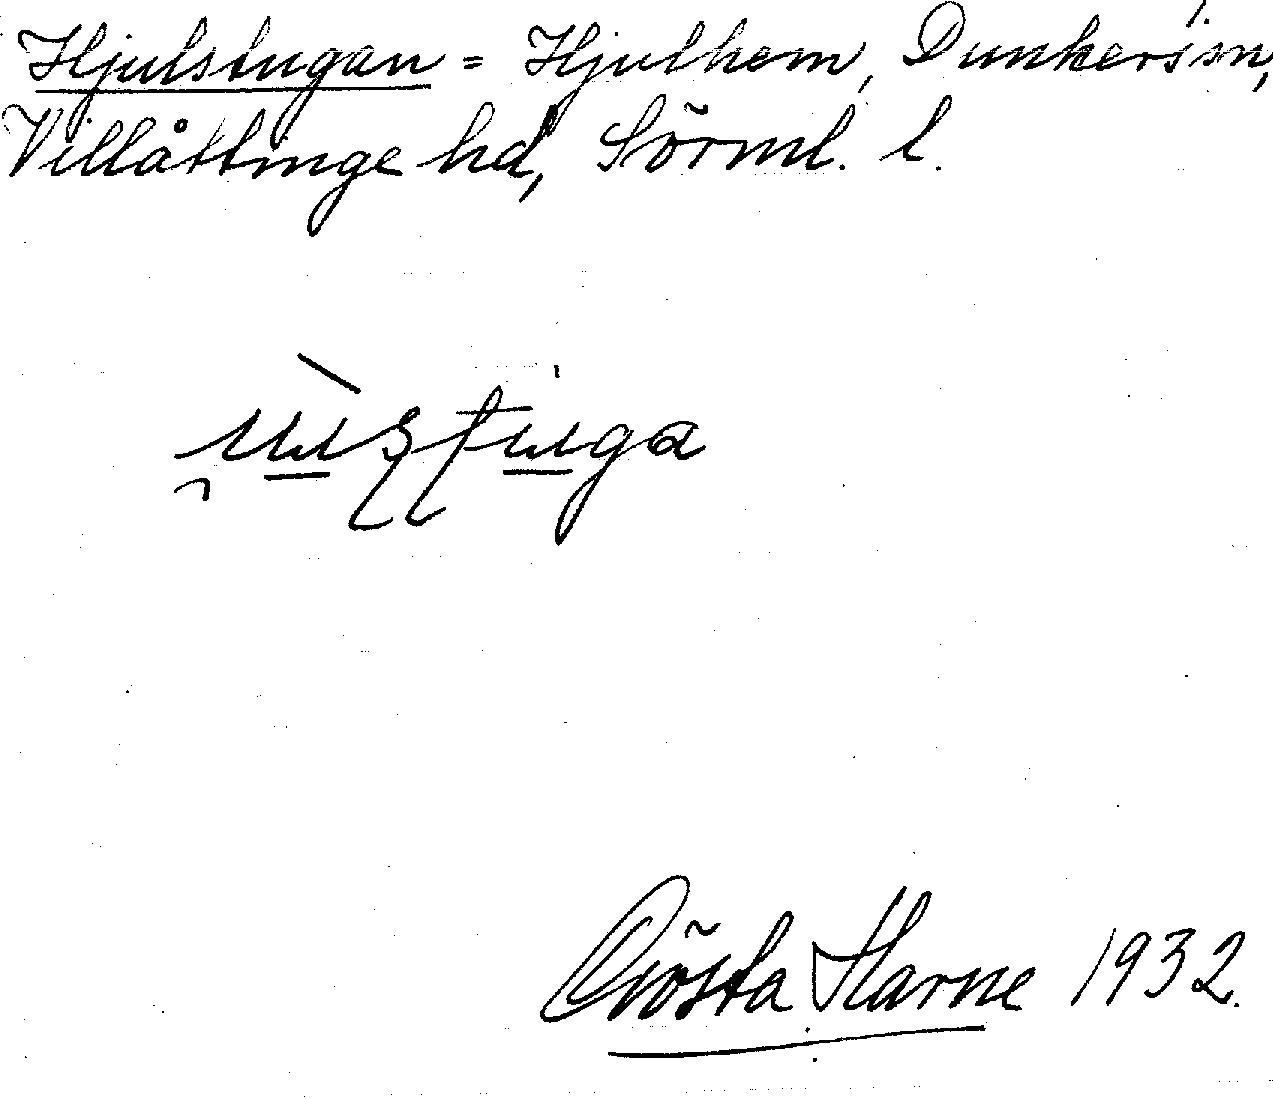 Hjulstugan = Hjulhem, Dunkers sn,
Villåttinge hd, Sörml. l.
Gösta Harne 1932.